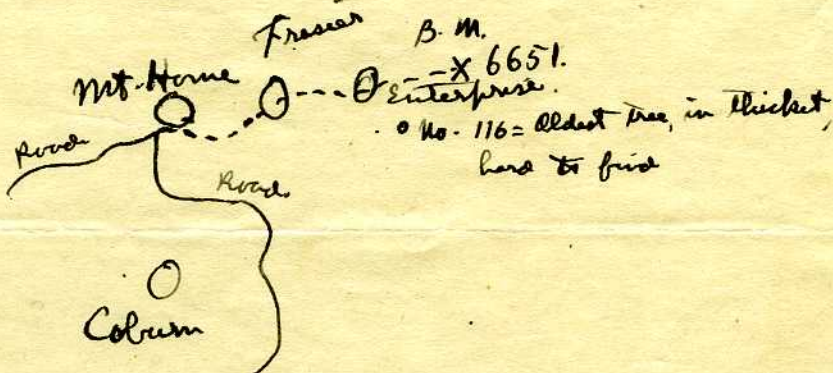 Frasier
B. M.
Mt. Home
X 6651.
Enterprise.
Road
No. 116 = Oldest tree, in thicket,
hard to find
Road
Coburn